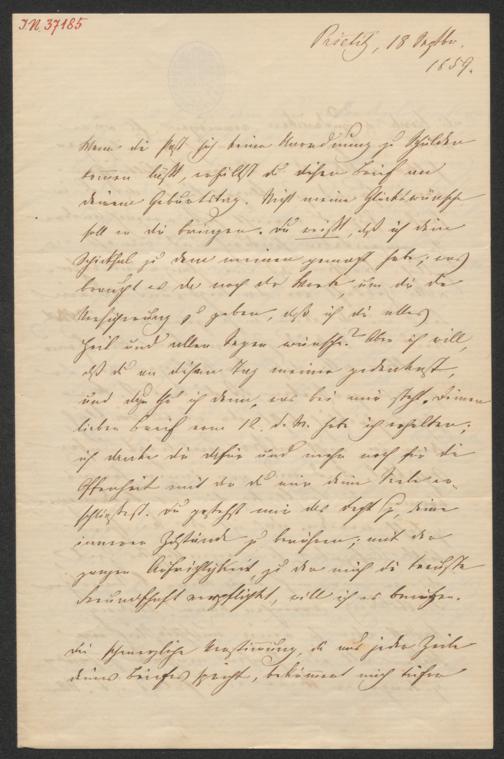 I.N. 37185
18 Septbr.
1859.
Wenn die Post sich keine Unordnung zu Schulden
kommen läßt, erhältst du diesen Brief an
deinem Geburtstag. Nicht meine Glückwünsche
soll er dir bringen. Du weißt, daß ich dein
Schicksal zu dem meinen gemacht habe; was
braucht es da noch der Worte, um dir die
Versicherung zu geben, daß ich dir alles
Heil und allen Segen wünsche? Aber ich will,
daß du an diesem Tag meiner gedenkest,
und dazu thu' ich denn, was bei mir steht. Deinen
lieben Brief vom 12. d. M. habe ich erhalten;
ich danke dir dafür und mehr noch für die
Offenheit mit der du mir deine Seele er-
schließest. Du gestehst mir das Recht zu, deine
inneren Zustände zu berühren; mit der
ganzen Aufrichtigkeit, zu der mich die treueste
Freundschaft verpflichtet, will ich es benützen.
Die schmerzliche Verstimmung, die aus jeder Zeile
deines Briefes spricht, bekümmert mich tiefer